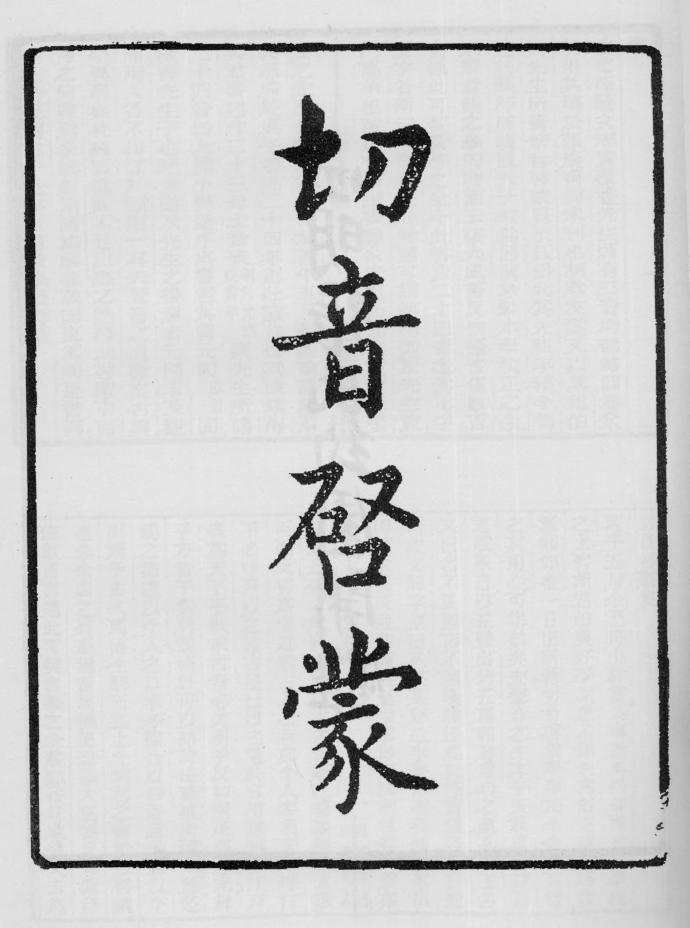 切音啓蒙